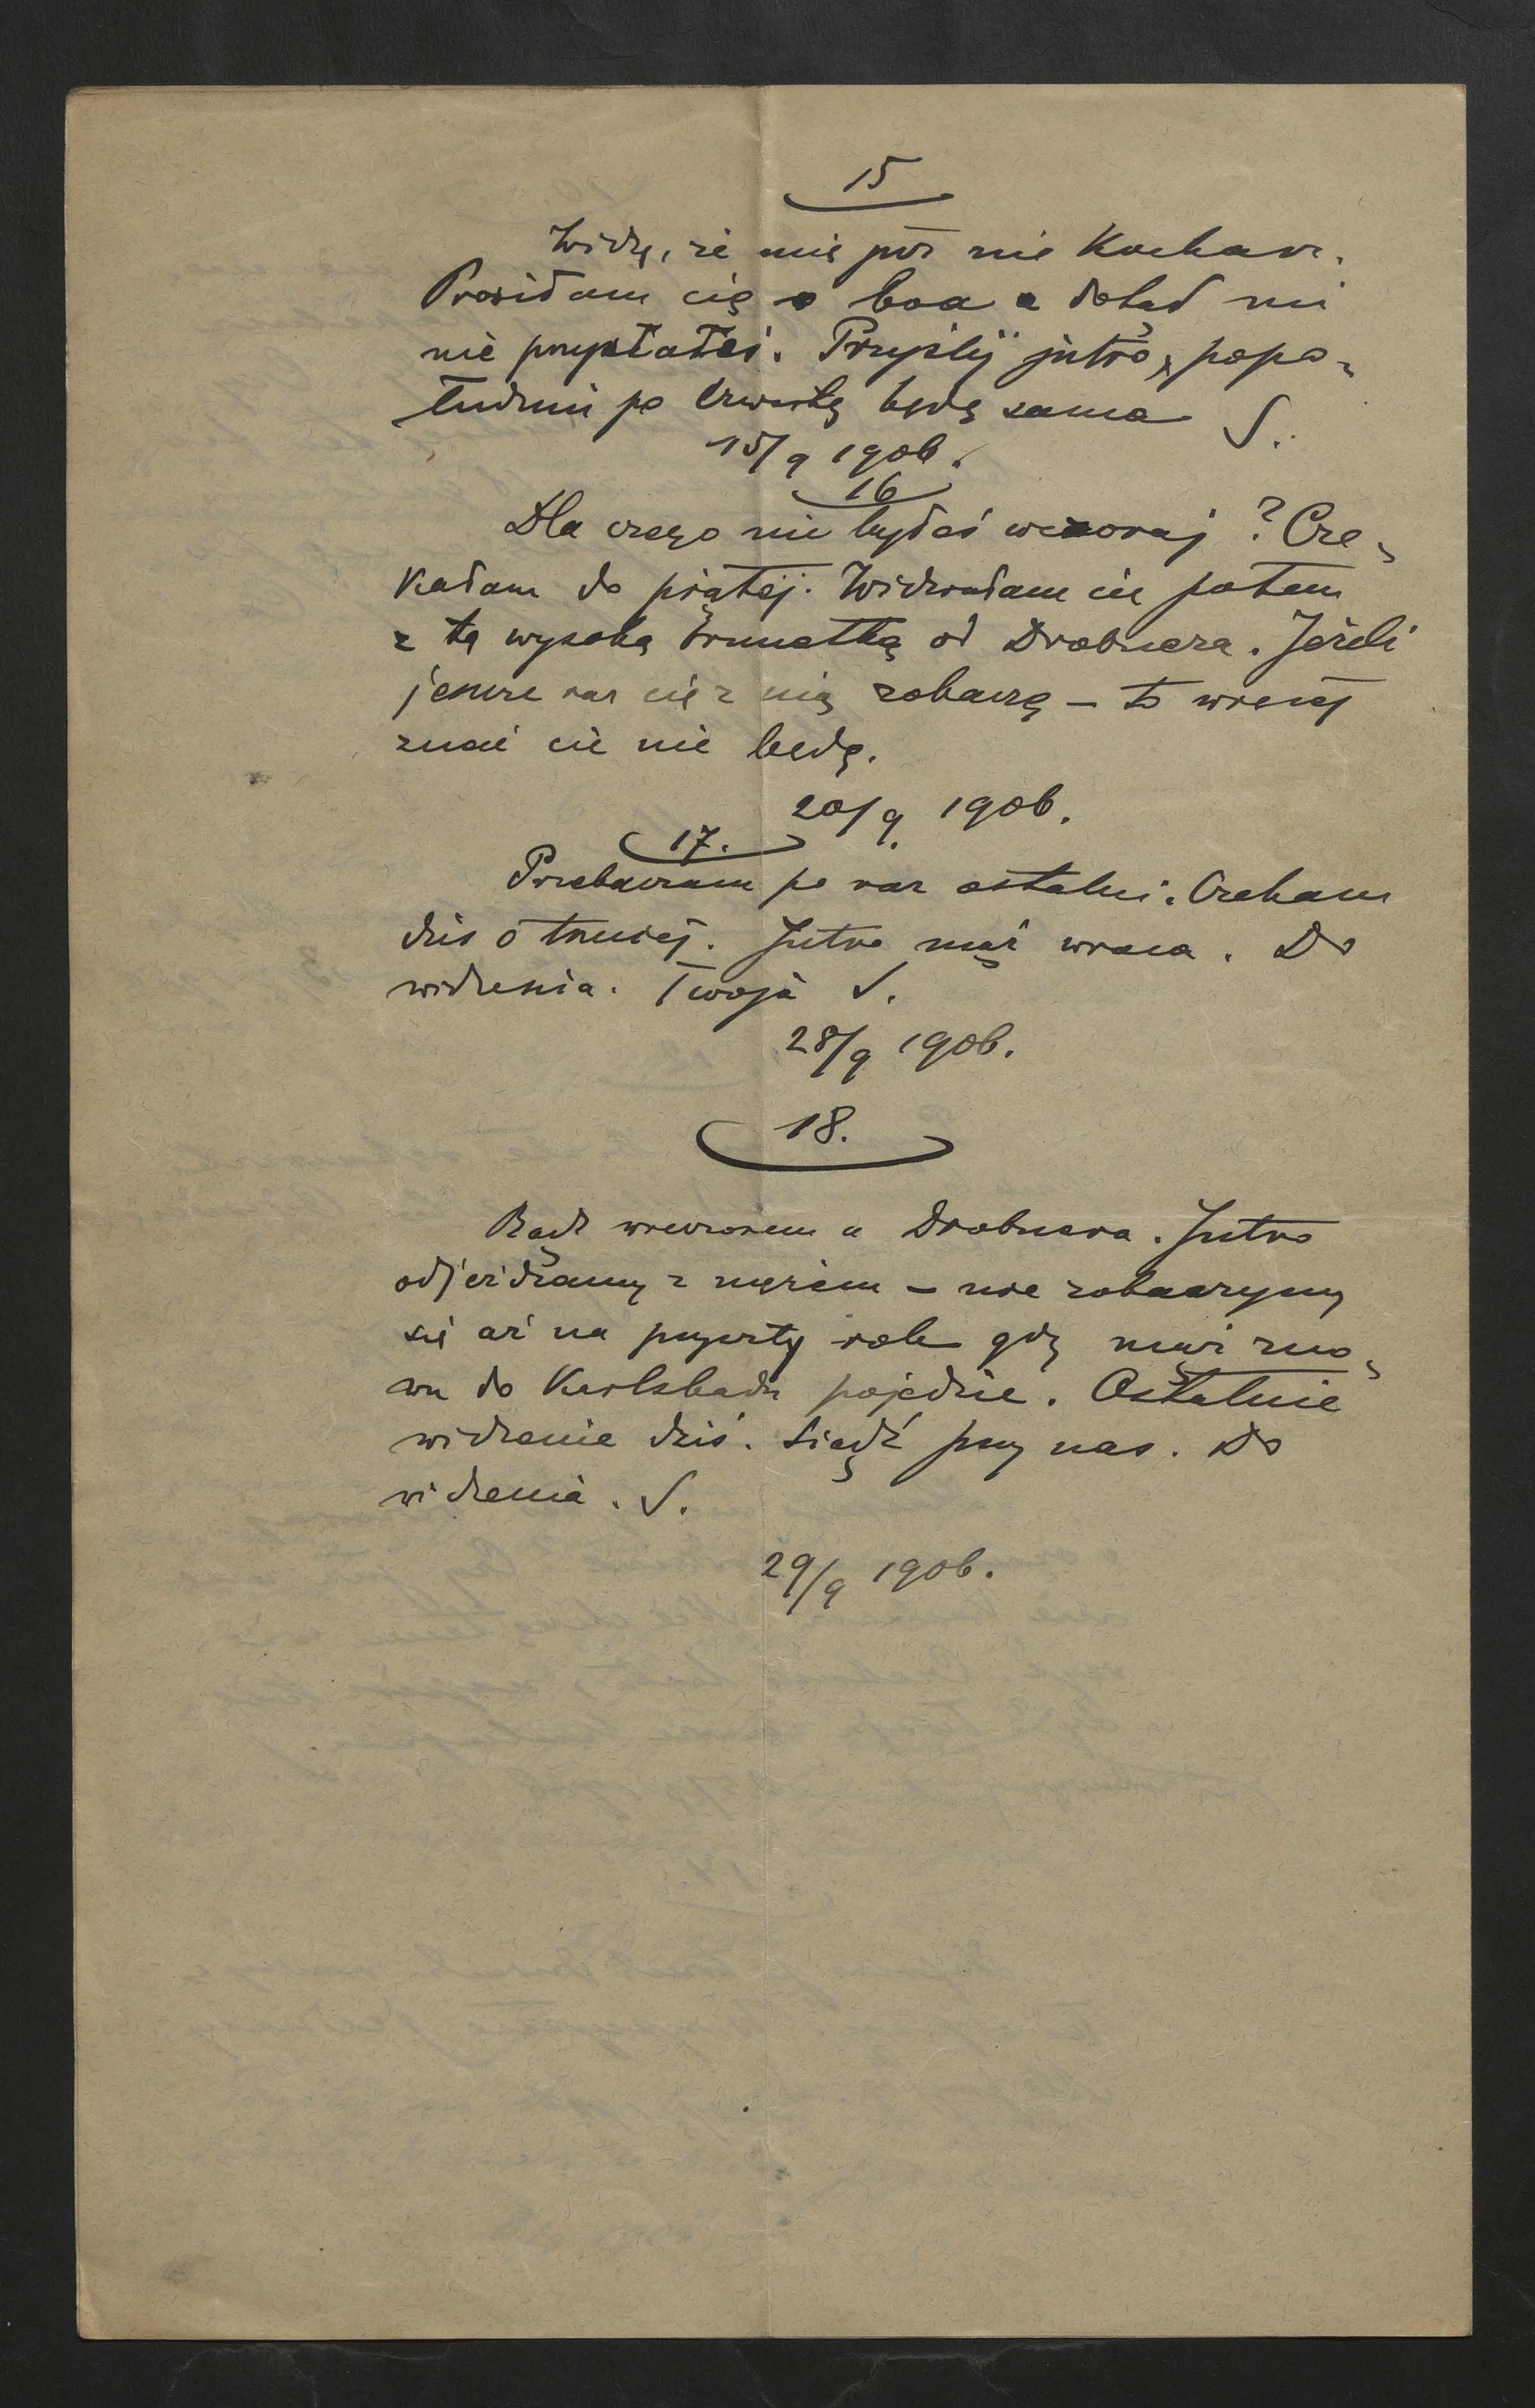 15
Widzę, że mię już nie kochasz.
Prosiłam cię o boa a dotąd mi
nie przysłałeś. Przyślij jutro, popo-
łudniu po czwartej będę sama S.
15/9 1906.
16
Dla czego nie byłeś wczoraj? Cze-
kałam do piątej. Widziałam cię potem
z tą wysoką brunetką od Drobnera. Jeżeli
jeszcze raz cię z nią zobaczę – to więcej
znać cię nie będę.
20/9. 1906.
17.
Przebaczam po raz ostatni. Czekam
dziś o trzeciej. Jutro mąż wraca. Do
widzenia. Twoja S.
28/9 1906.
18.
Bądź wieczorem u Drobnera. Jutro
odjeżdżamy z mężem – nie zobaczymy
się aż na przyszły rok gdy mąż zno-
wu do Karlsbadu pojedzie. Ostatnie
widzenie dziś. Siądź przy nas. Do
widzenia. S.
29/9 1906.